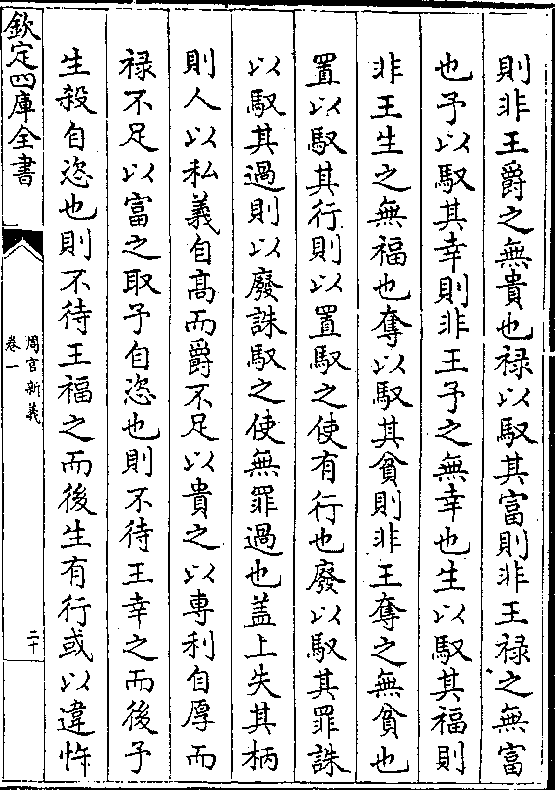 則非王爵之無貴也禄以馭其富則非王禄之無富
也予以馭其幸則非王予之無幸也生以馭其福則
非王生之無福也奪以馭其貧則非王奪之無貧也
置以馭其行則以置馭之使有行也廢以馭其罪誅
以馭其過則以廢誅馭之使無罪過也盖上失其柄
則人以私義自高而爵不足以貴之以專利自厚而
禄不足以富之取予自恣也則不待王幸之而後予
生殺自恣也則不待王福之而後生有行或以違忤
欽定四庫全書
周官新義
卷一
二十